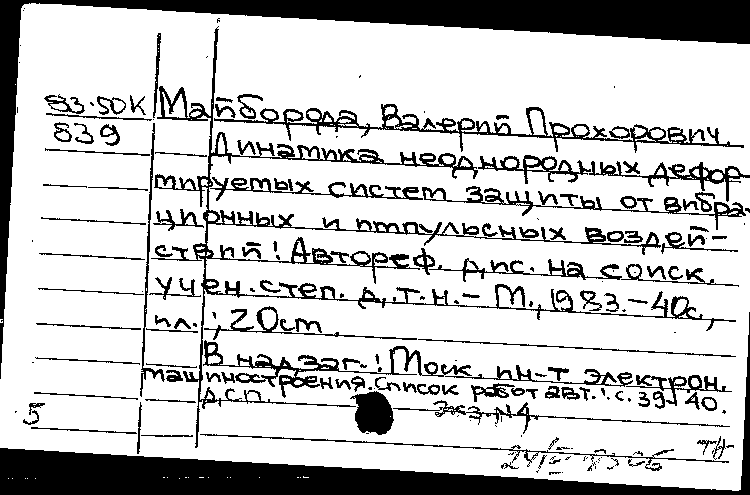 83-50К Майборода, Валерий Прохорович.
839
Динамика неоднородных дефор-
мируемых систем защиты от вибра-
ционных и импульсных воздей-
ствий: Автореф. дис. на соиск.
учен. степ. д.т.н. - М., 1983. - 40с.,
ил.; 20см.
В надзаг.: Моск. ин-т электрон.
машиностроения. Список работ авт.: с. 39-40.
Д.С.П.
Экз. N4.
5